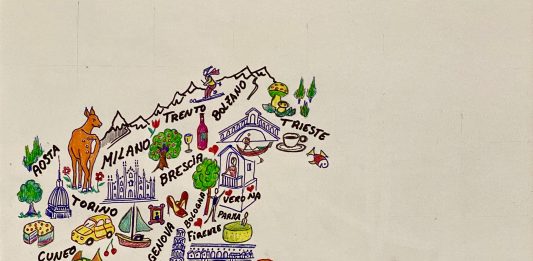 TRENTO
BOLZANO
TRIESTE
AOSTA
MILANO
BRESCIA
VERONA
TORINO
BOLOGNA
PARMA
FIRENZE
GENOVA
CUNEO